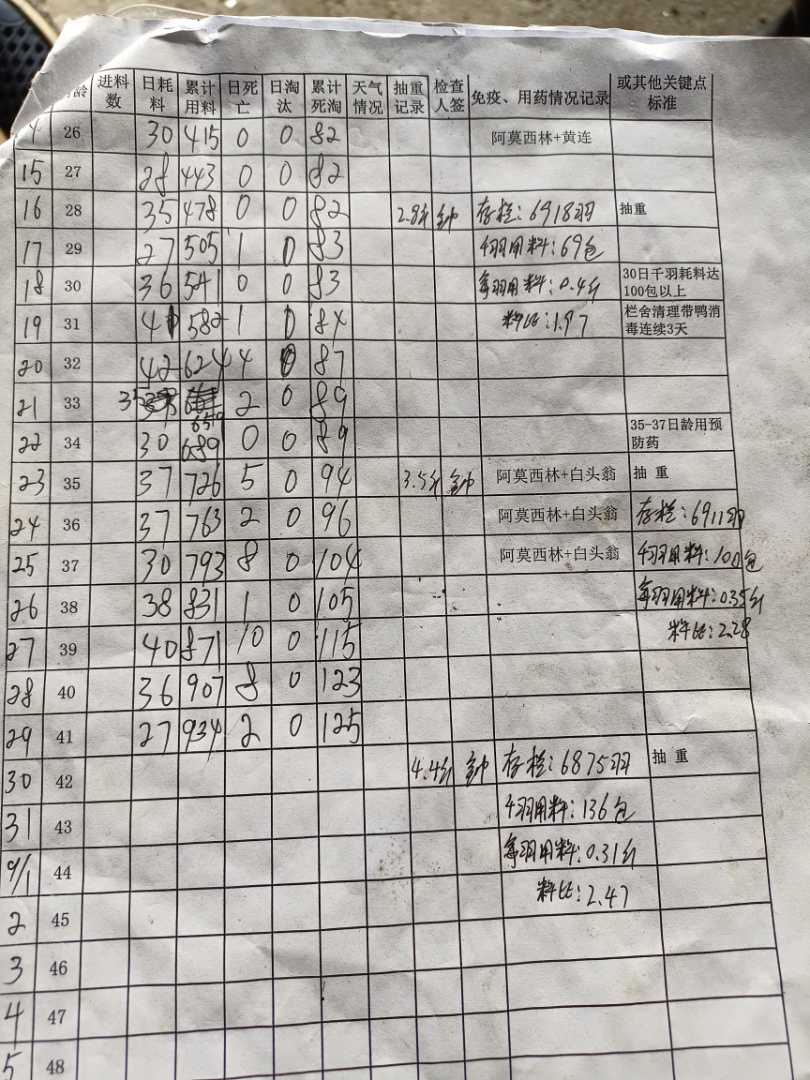 龄 进料数 日耗料 累计用料 日死亡 日淘汰 累计死淘 天气情况 抽重记录 检查人签 免疫、用药情况记录 或其他关键点标准
4 26 30 415 0 0 82 阿莫西林+黄连
15 27 28 443 0 0 82
16 28 35 478 0 0 82 2.8斤 存栏:6918羽 抽重
17 29 27 505 1 0 83 千羽用料:69包
18 30 36 541 0 0 83 每羽用料:0.4斤 30日千羽耗料达100包以上
19 31 41 582 1 0 84 料比:1.97 栏舍清理带鸭消毒连续3天
20 32 42 624 4 0 87
21 33 35 659 2 0 89
22 34 30 689 0 0 89 35-37日龄用预防药
23 35 37 726 5 0 94 3.5斤 阿莫西林+白头翁 抽 重
24 36 37 763 2 0 96 阿莫西林+白头翁 存栏:6911羽
25 37 30 793 8 0 104 阿莫西林+白头翁 千羽用料:100包
26 38 38 831 1 0 105 每羽用料:0.35斤
27 39 40 871 10 0 115 料比:2.28
28 40 36 907 8 0 123
29 41 27 934 2 0 125
30 42 4.4斤 存栏:6875羽 抽 重
31 43 千羽用料:136包
9/1 44 每羽用料:0.31斤
2 45 料比:2.47
3 46
4 47
5 48